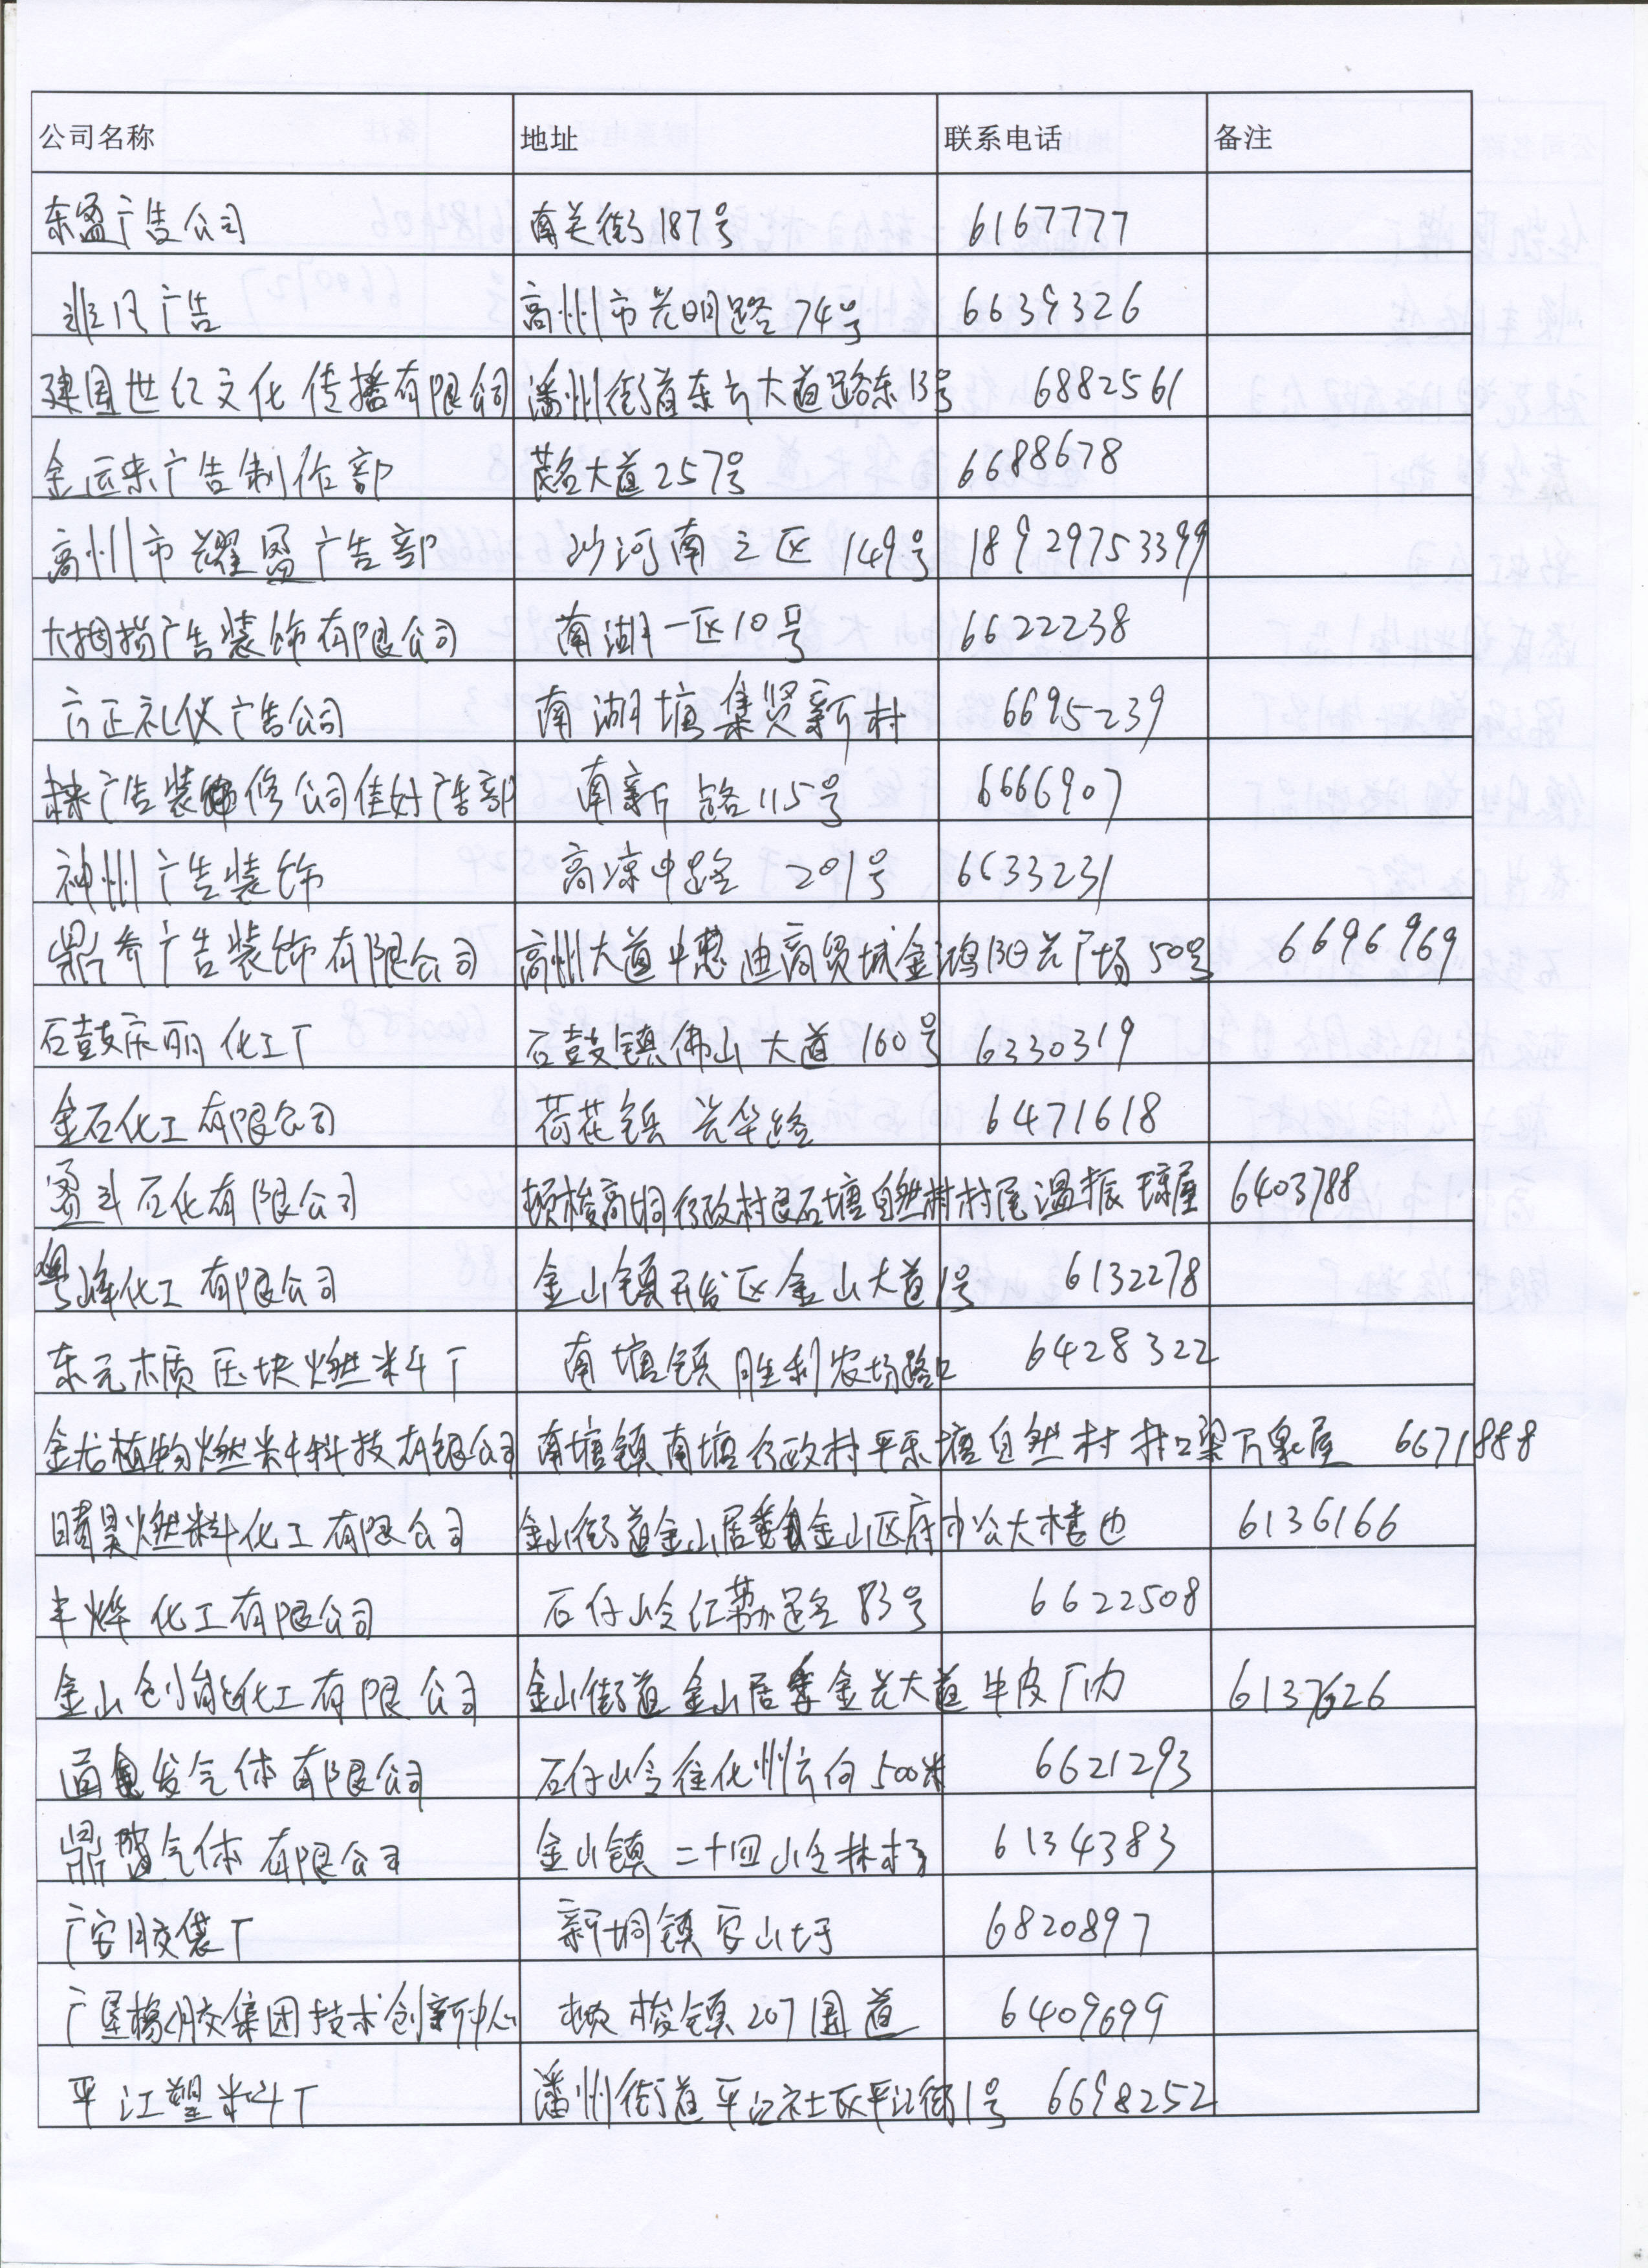 公司名称 地址 联系电话 备注
东盈广告公司 南关街187号 6167777
非凡广告 高州市光明路74号 6639326
建国世纪文化传播有限公司 潘州街道东方大道路东13号 6882561
金运来广告制作部 茂名大道257号 6688678
高州市耀盈广告部 沙河南三区149号 18929753399
大拇指广告装饰有限公司 南湖一区10号 6622238
方正礼仪广告公司 南湖塘集贤新村 6695239
广告装修公司佳好广告部 南新路115号 6666907
神州广告装饰 高凉中路201号 6633231
鼎乔广告装饰有限公司 高州大道中惠迪商贸城金鸿阳光广场50号 6696969
石鼓庆丽化工厂 石鼓镇佛山大道160号 6330319
金石化工有限公司 荷花镇光华路 6471618
盈斗石化有限公司 顿梭高垌行政村良石塘自然村村尾温振琼屋 6403788
粤峰化工有限公司 金山镇开发区金山大道1号 6132278
东元木质压块燃料厂 南塘镇胜利农场路口 6428322
金龙植物燃料科技有限公司 南塘镇南塘行政村平乐塘自然村村口梁万泉屋 6671888
晴昊燃料化工有限公司 金山街道金山居委金山区府办公大楼边 6136166
丰烨化工有限公司 石仔岭仁勤路83号 6622508
金山创能化工有限公司 金山街道金山居委金光大道牛皮厂内 6137626
发气体有限公司 石仔岭往化州方向500米 6621293
鼎盛气体有限公司 金山镇二十四岭林场 6134383
广安胶袋厂 新垌镇安山圩 6820897
广垦橡胶集团技术创新中心 顿梭镇207国道 6409699
平江塑料厂 潘州街道平江社区平江街1号 6698252